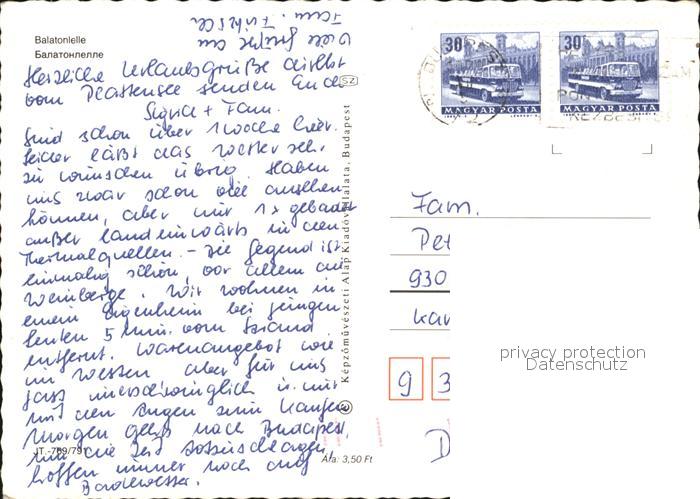 Balatonlelle
Балатонлелле
Viele Grüße an
Fam.
Herzliche Urlaubsgrüße direkt
vom Plattensee senden Euch
Sigrid + Fam.
Sind schon über 1 Woche hier.
Leider läßt das Wetter sehr
zu wünschen übrig. Haben
uns zwar schon viel ansehen
können, aber nur 1x gebadet
außer landeinwärts in den
Thermalquellen. – Die Gegend ist
einmalig schön, vor allem die
Weinberge. Wir wohnen in
einem Eigenheim bei jungen
Leuten 5 Min. vom Strand
entfernt. Warenangebot wie
im Westen aber für uns
fast unerschwinglich u. nur
mit den Augen zum Kaufen
Morgen geht's nach Budapest,
um die Zeit totzuschlagen,
hoffen immer noch auf
Badewetter.
IT. -789/791
SZ
Képzőművészeti Alap Kiadóvállalata, Budapest
Ára: 3,50 Ft
30 30
MAGYAR POSTA MAGYAR POSTA
Fam.
Pet
930
Kar
9 3
D
privacy protection
Datenschutz